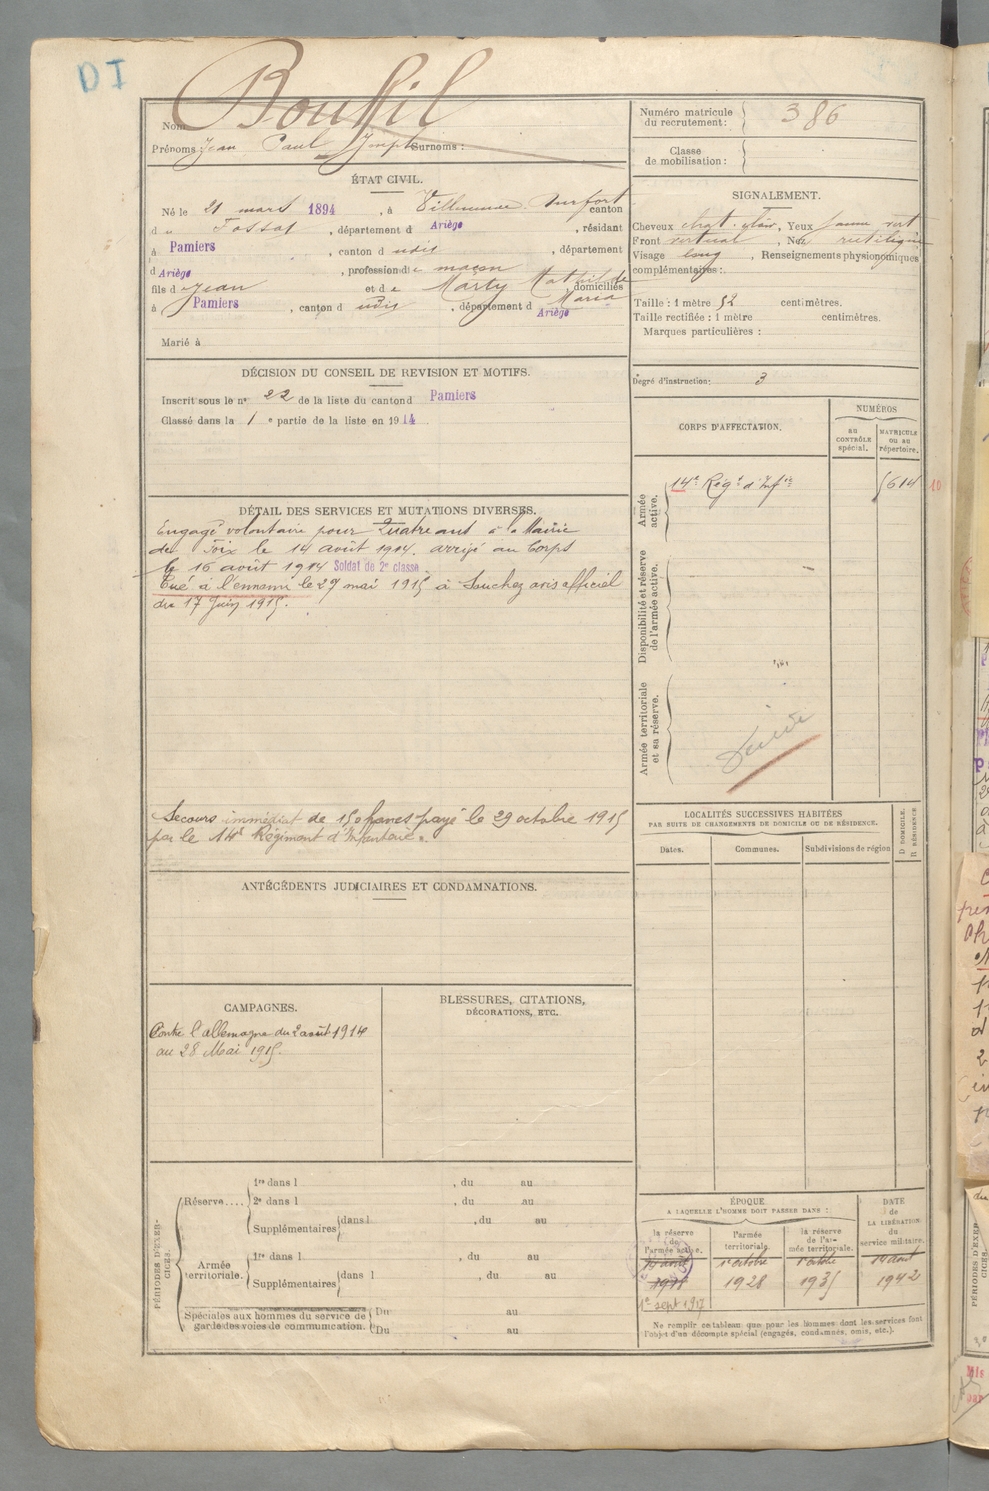 DI
Nom Bouffil
Prénoms : Jean Paul Joseph Surnoms :
Numéro matricule du recrutement : 386
Classe de mobilisation :
ÉTAT CIVIL.
Né le 21 mars 1894, à Villeneuve Durfort canton
d u Fossat, département d Ariège, résidant
à Pamiers, canton d udit, département
d Ariège, profession de maçon
fils d e Jean et de Marty Mathilde Maria, domiciliés
à Pamiers, canton d udit, département d Ariège
Marié à
SIGNALEMENT.
Cheveux chat. clair, Yeux jaune vert
Front vertical, Nez rectiligne
Visage long, Renseignements physionomiques
complémentaires :
Taille : 1 mètre 52 centimètres.
Taille rectifiée : 1 mètre centimètres.
Marques particulières :
Degré d'instruction : 3
DÉCISION DU CONSEIL DE REVISION ET MOTIFS.
Inscrit sous le nº 22 de la liste du canton d Pamiers
Classé dans la 1 e partie de la liste en 1914
CORPS D'AFFECTATION.
NUMÉROS
au CONTRÔLE spécial.
MATRICULE ou au répertoire.
Armée active.
14e Régt d'Infie
5614
10
Disponibilité et réserve de l'armée active.
Armée territoriale et sa réserve.
DÉTAIL DES SERVICES ET MUTATIONS DIVERSES.
Engagé volontaire pour Quatre ans à la Mairie
de Foix le 14 août 1914. arrivé au Corps
le 16 août 1914 Soldat de 2e classe
Tué à l'ennemi le 27 mai 1915 à Souchez avis officiel
du 17 Juin 1915.
Secours immédiat de 150 francs payé le 29 octobre 1915
par le 14e Régiment d'Infanterie.
LOCALITÉS SUCCESSIVES HABITÉES
PAR SUITE DE CHANGEMENTS DE DOMICILE OU DE RÉSIDENCE.
Dates.
Communes.
Subdivisions de région
D DOMICILE.
R RÉSIDENCE
ANTÉCÉDENTS JUDICIAIRES ET CONDAMNATIONS.
CAMPAGNES.
Contre l'allemagne du 2 août 1914
au 28 Mai 1915.
BLESSURES, CITATIONS,
DÉCORATIONS, ETC.
PÉRIODES D'EXERCICES.
Réserve....
1re dans l , du au
2e dans l , du au
Supplémentaires dans l , du au
Armée territoriale.
1re dans l , du au
Supplémentaires dans l , du au
Spéciales aux hommes du service de garde des voies de communication.
Du au
Du au
ÉPOQUE
A LAQUELLE L'HOMME DOIT PASSER DANS :
la réserve de l'armée active.
l'armée territoriale.
la réserve de l'armée territoriale.
DATE de LA LIBÉRATION du service militaire.
1er octobre 1928
1er octobre 1935
1er août 1942
1er sept 1917
Ne remplir ce tableau que pour les hommes dont les services font
l'objet d'un décompte spécial (engagés, condamnés, omis, etc.).